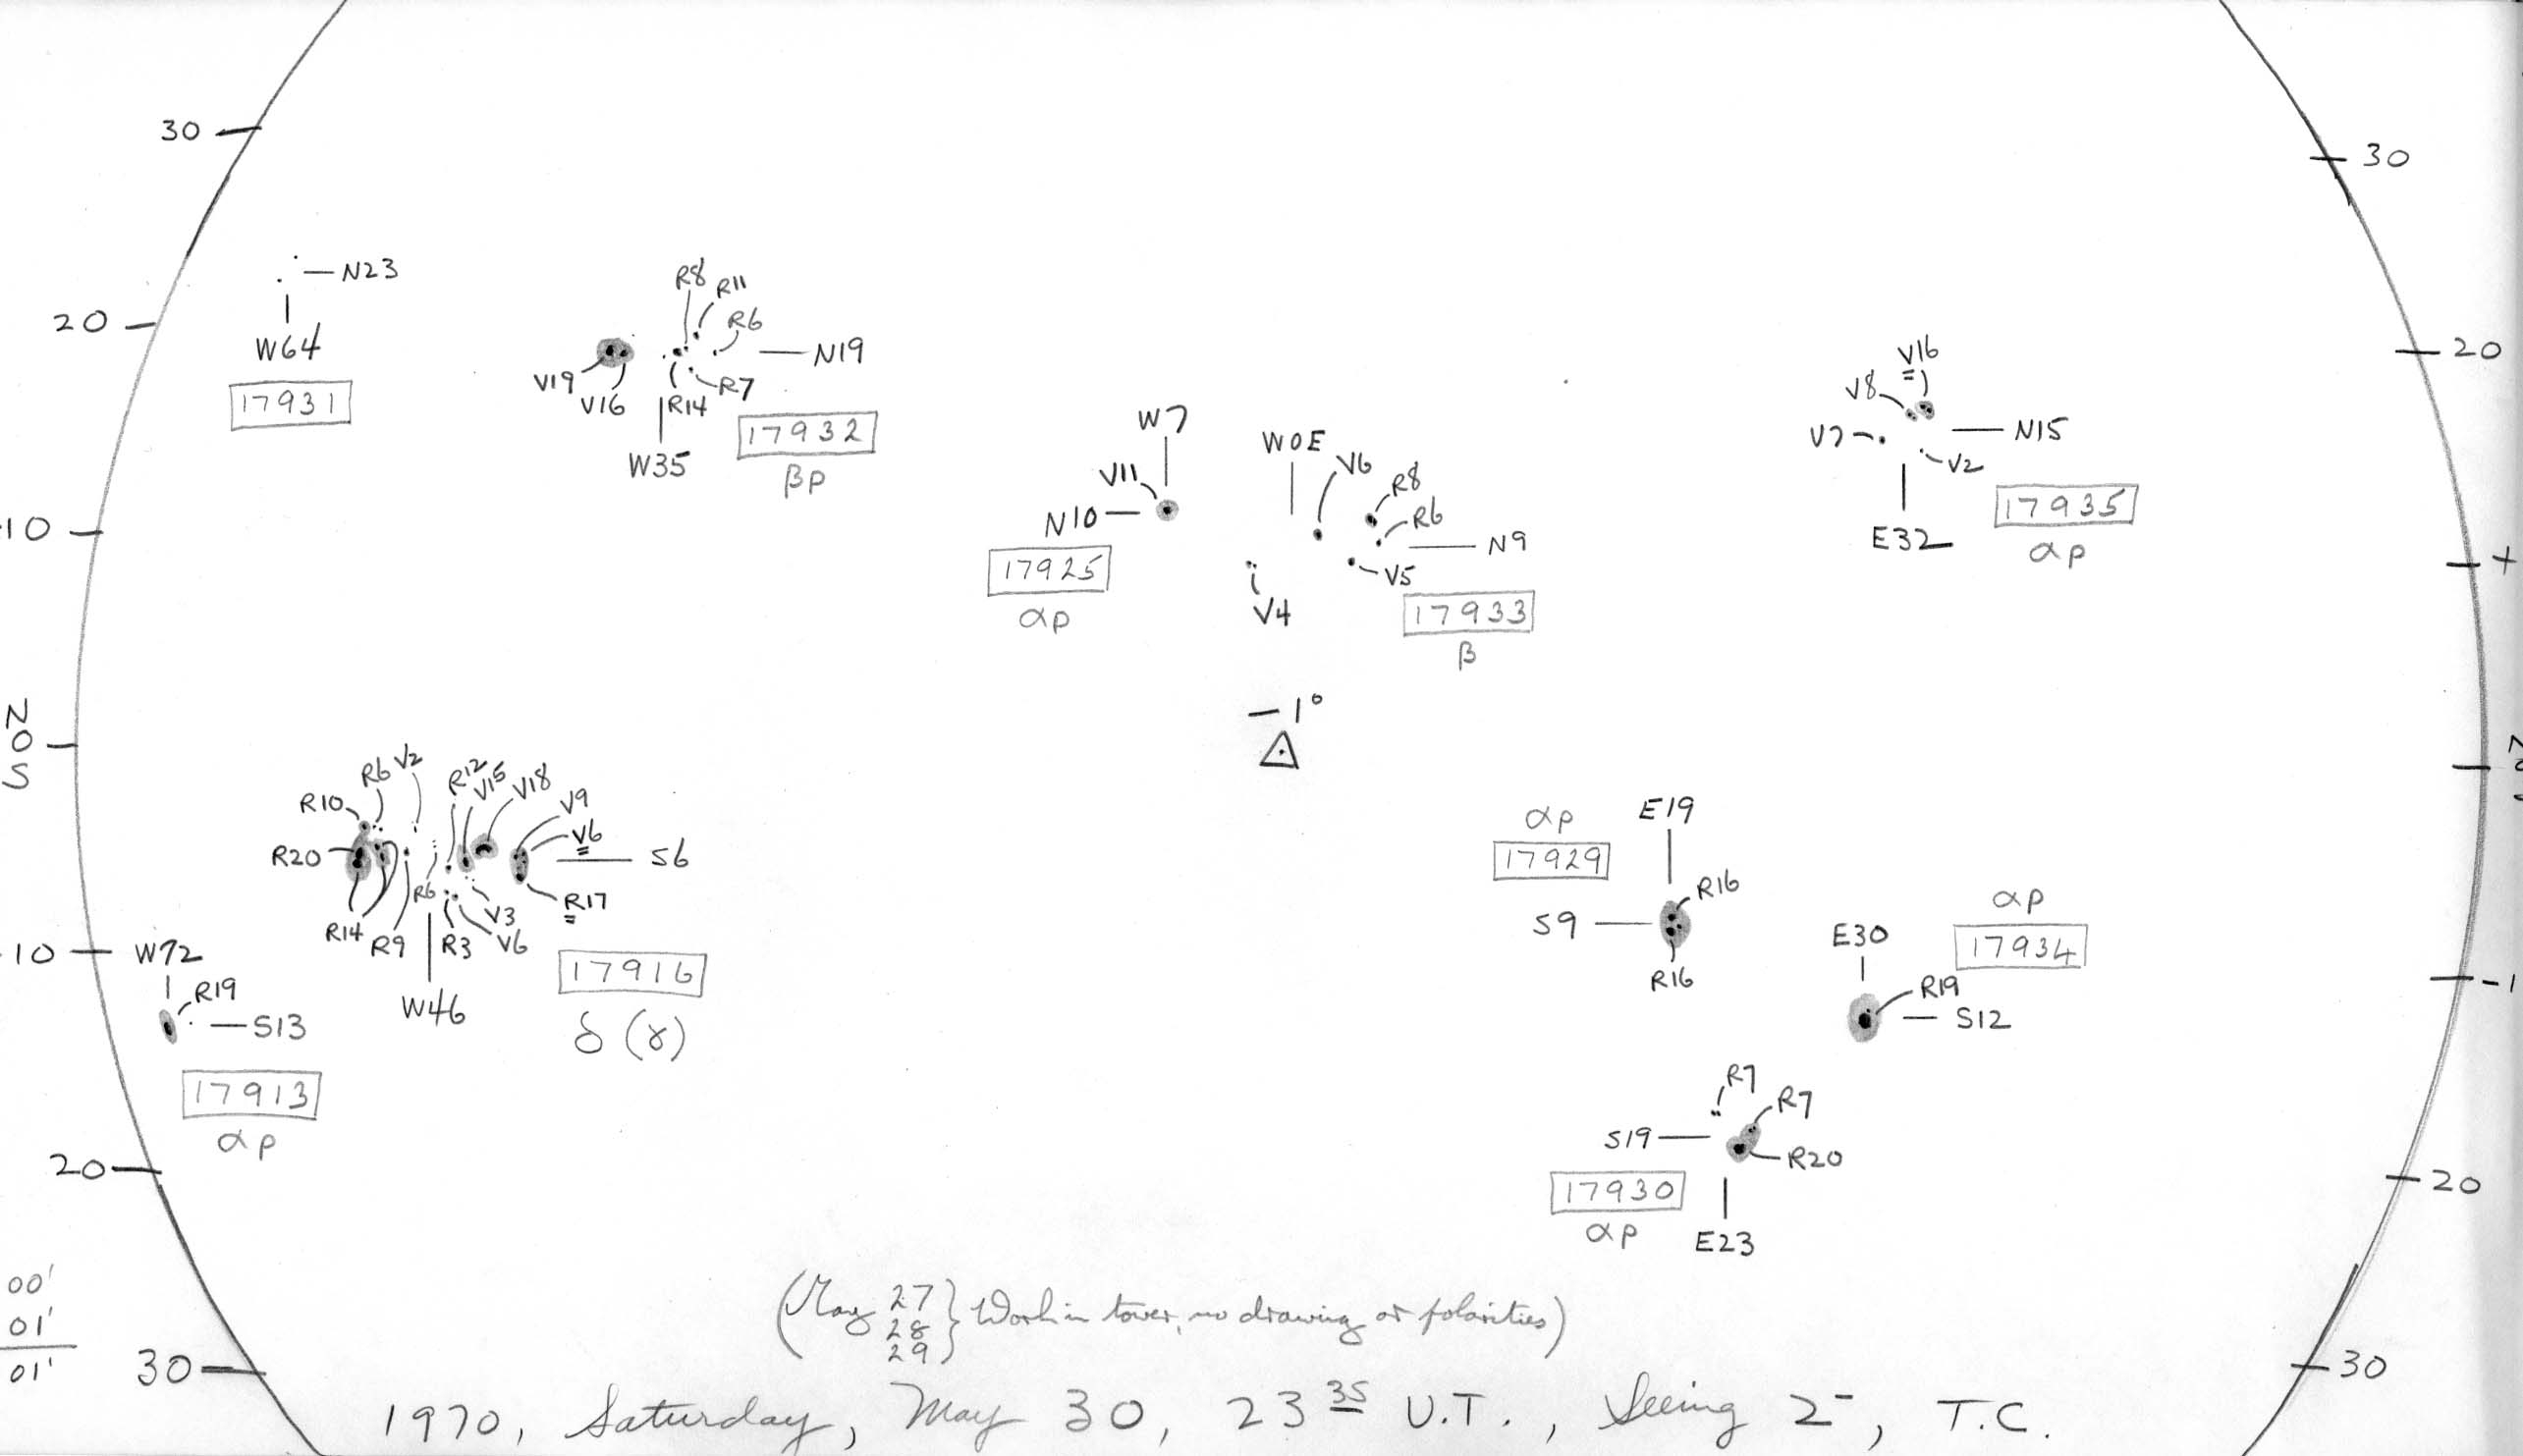 30
30
N23
20
W64
17931
R8
R11
R6
N19
V19
V16
R14
R7
W35
17932
βp
20
V16
V8
V7
N15
V2
E32
17935
αp
W7
V11
N10
17925
αp
W0E
V6
R8
R6
N9
V5
V4
17933
β
10
+
-1°
N
0
S
R6
V2
R12
V15
V18
R10
V9
V6
R20
S6
R6
R17
R14
R9
R3
V3
V6
W46
17916
δ (γ)
αp
17929
E19
R16
S9
R16
αp
17934
E30
R19
S12
10
-1
W72
R19
S13
17913
αp
R7
R7
S19
R20
17930
αp
E23
20
20
00'
01'
01'
(May 27 } Work in tower, no drawing or polarities)
28
29
30
30
1970, Saturday, May 30, 23 35 U.T., Seeing 2-, T.C.